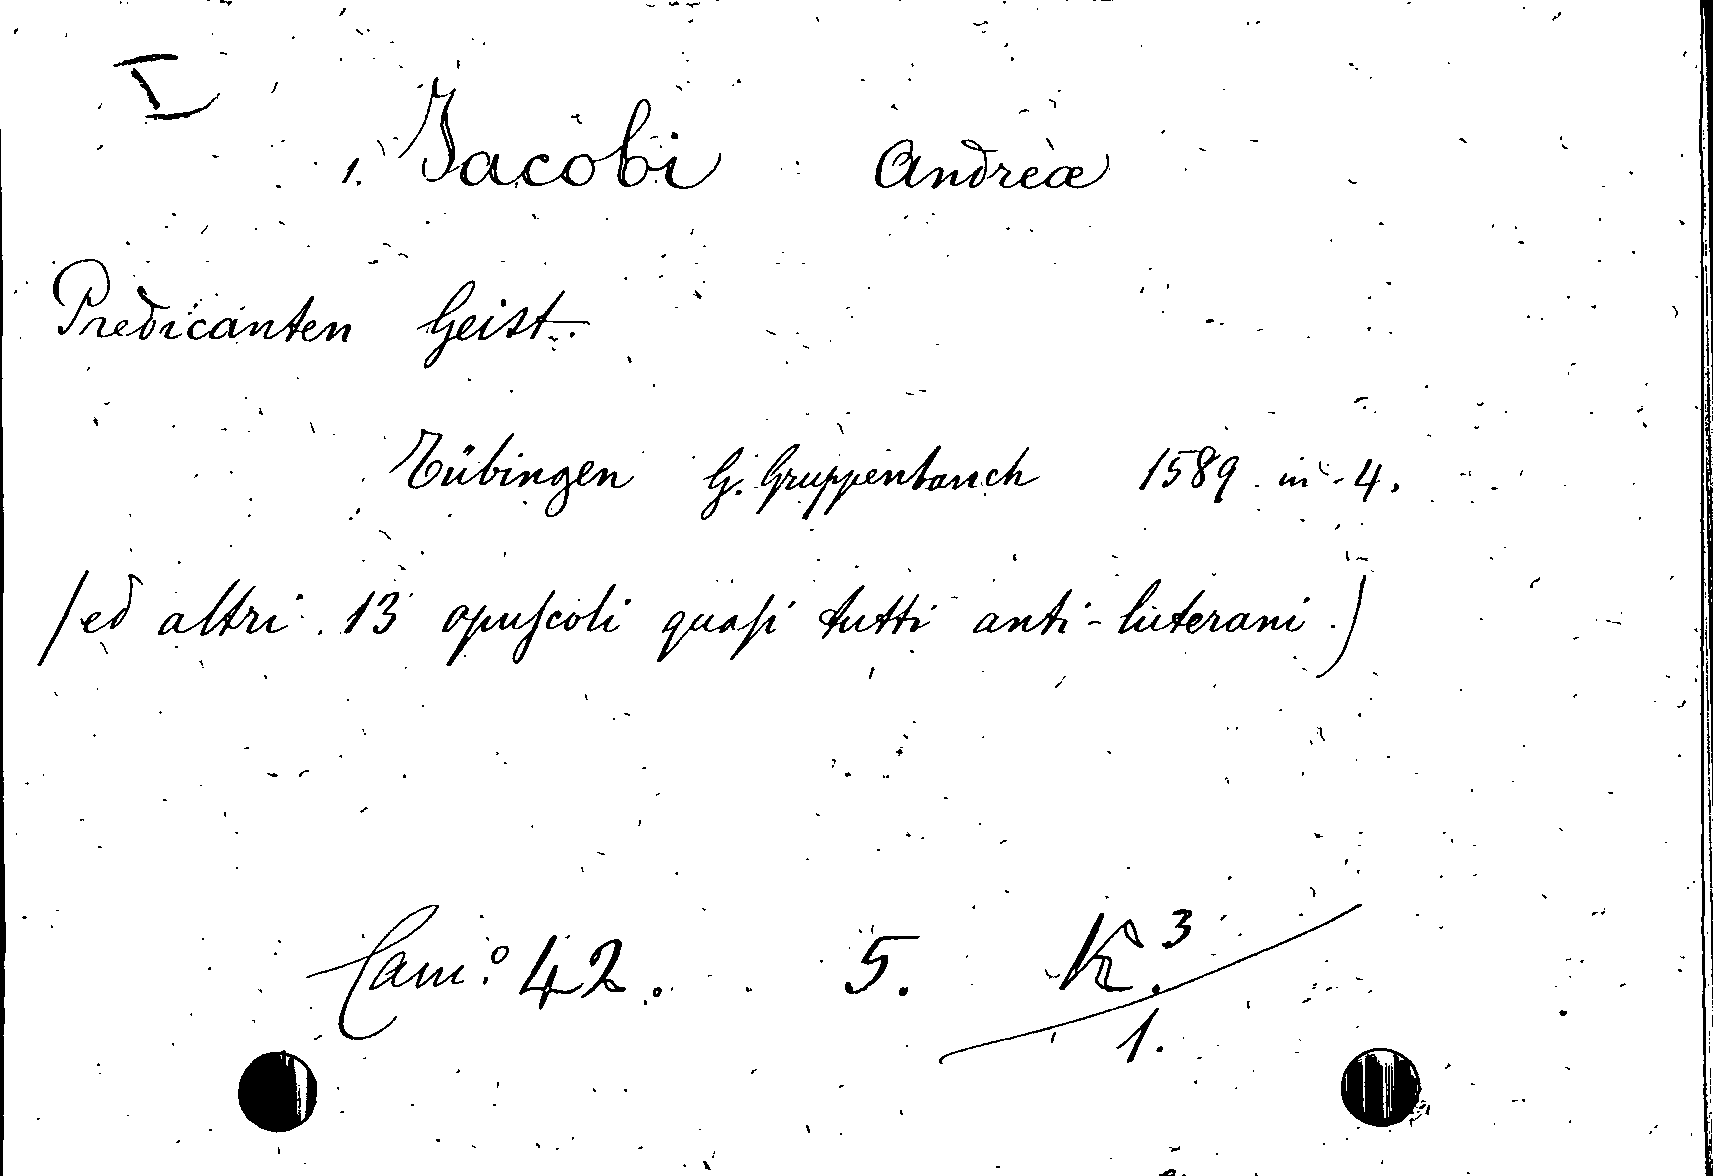 I
1. Jacobi Andreæ
Predicanten Geist.
Tübingen G. Gruppenbauch 1589 in-4.
(ed altri 13 opuscoli quasi tutti anti-luterani.)
Cam.º 42. 5. K.³
1.